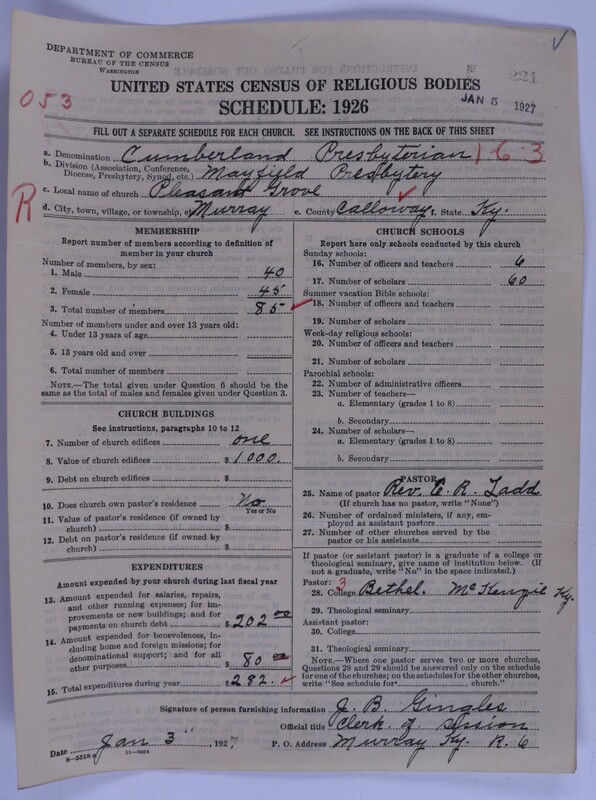 DEPARTMENT OF COMMERCE
BUREAU OF THE CENSUS
WASHINGTON
UNITED STATES CENSUS OF RELIGIOUS BODIES
SCHEDULE: 1926
JAN 5 1927
221
053
FILL OUT A SEPARATE SCHEDULE FOR EACH CHURCH. SEE INSTRUCTIONS ON THE BACK OF THIS SHEET
a. Denomination Cumberland Presbyterian 1 6-3
b. Division (Association, Conference, Diocese, Presbytery, Synod, etc.) Mayfield Presbytery
c. Local name of church Pleasant Grove
R
d. City, town, village, or township, etc. Murray e. County Calloway f. State Ky.
MEMBERSHIP
Report number of members according to definition of
member in your church
Number of members, by sex:
1. Male 40
2. Female 45
3. Total number of members 85
Number of members under and over 13 years old:
4. Under 13 years of age
5. 13 years old and over
6. Total number of members
NOTE.—The total given under Question 6 should be the
same as the total of males and females given under Question 3.
CHURCH BUILDINGS
See instructions, paragraphs 10 to 12
7. Number of church edifices one
8. Value of church edifices $ 1000.
9. Debt on church edifices $
10. Does church own pastor's residence No
Yes or No
11. Value of pastor's residence (if owned by
church) $
12. Debt on pastor's residence (if owned by
church) $
EXPENDITURES
Amount expended by your church during last fiscal year
13. Amount expended for salaries, repairs,
and other running expenses; for im-
provements or new buildings; and for
payments on church debt $ 202 00
14. Amount expended for benevolences, in-
cluding home and foreign missions; for
denominational support; and for all
other purposes $ 80 00
15. Total expenditures during year $ 282.
CHURCH SCHOOLS
Report here only schools conducted by this church
Sunday schools:
16. Number of officers and teachers 6
17. Number of scholars 60
Summer vacation Bible schools:
18. Number of officers and teachers
19. Number of scholars
Week-day religious schools:
20. Number of officers and teachers
21. Number of scholars
Parochial schools:
22. Number of administrative officers
23. Number of teachers—
a. Elementary (grades 1 to 8)
b. Secondary
24. Number of scholars—
a. Elementary (grades 1 to 8)
b. Secondary
PASTOR
25. Name of pastor Rev. C. R. Ladd
(If church has no pastor, write "None")
26. Number of ordained ministers, if any, em-
ployed as assistant pastors
27. Number of other churches served by the
pastor or his assistants
If pastor (or assistant pastor) is a graduate of a college or
theological seminary, give name of institution below. (If
not a graduate, write "No" in the space indicated.)
Pastor: 3
28. College Bethel. McKenzie Ky.
29. Theological seminary
Assistant pastor:
30. College
31. Theological seminary
NOTE.—Where one pastor serves two or more churches,
Questions 28 and 29 should be answered only on the schedule
for one of the churches; on the schedules for the other churches,
write "See schedule for church."
Signature of person furnishing information J. B. Gingles
Official title Clerk of session
Date Jan 3 , 1927 P. O. Address Murray Ky. R. 6
8-5518 a 11-9034